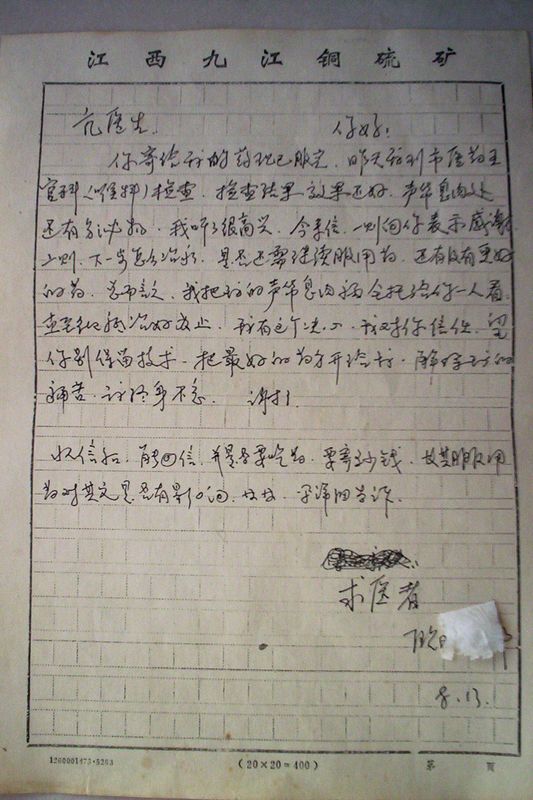 江西九江铜硫矿
亢医生 你好！
你寄给我的药现已服完，昨天我到市医药王
官科（喉科）检查，检查结果效果还好，声带息肉处
还有分泌物，我听了很高兴，今来信，一则向你表示感谢
二则，下一步怎么治疗，是否还需继续服用药，还有没有更好
的药，总而言之，我把我的声带息肉病全托给你一人看，
直至治好为止，我有这个决心，我又求你信任，望
你别保留技术，把最好的药方开给我，解除我的
痛苦，该终身不忘。 谢谢！
收信后，能回信，并是否要吃药，要寄多少钱，
药对其它是否有影响，
求医者
8.13.
1260001473·5203
（20×20=400）
第 页